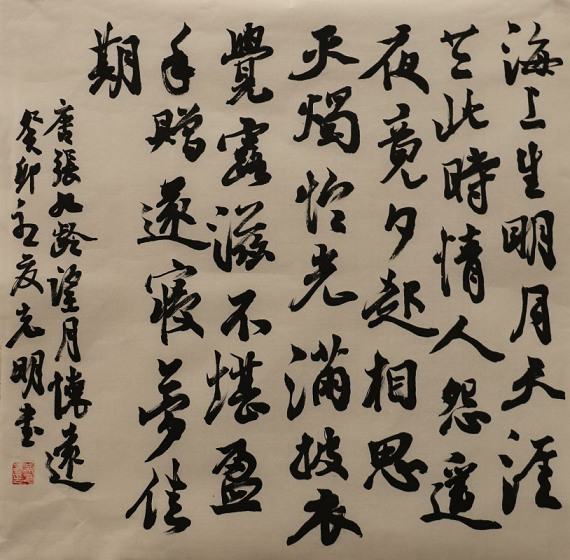 海上生明月天涯
共此時情人怨遥
夜竟夕起相思
灭燭怜光滿披衣
覺露滋不堪盈
手贈還寢夢佳
期
唐張九齡望月懷遠
癸卯初夏光明書